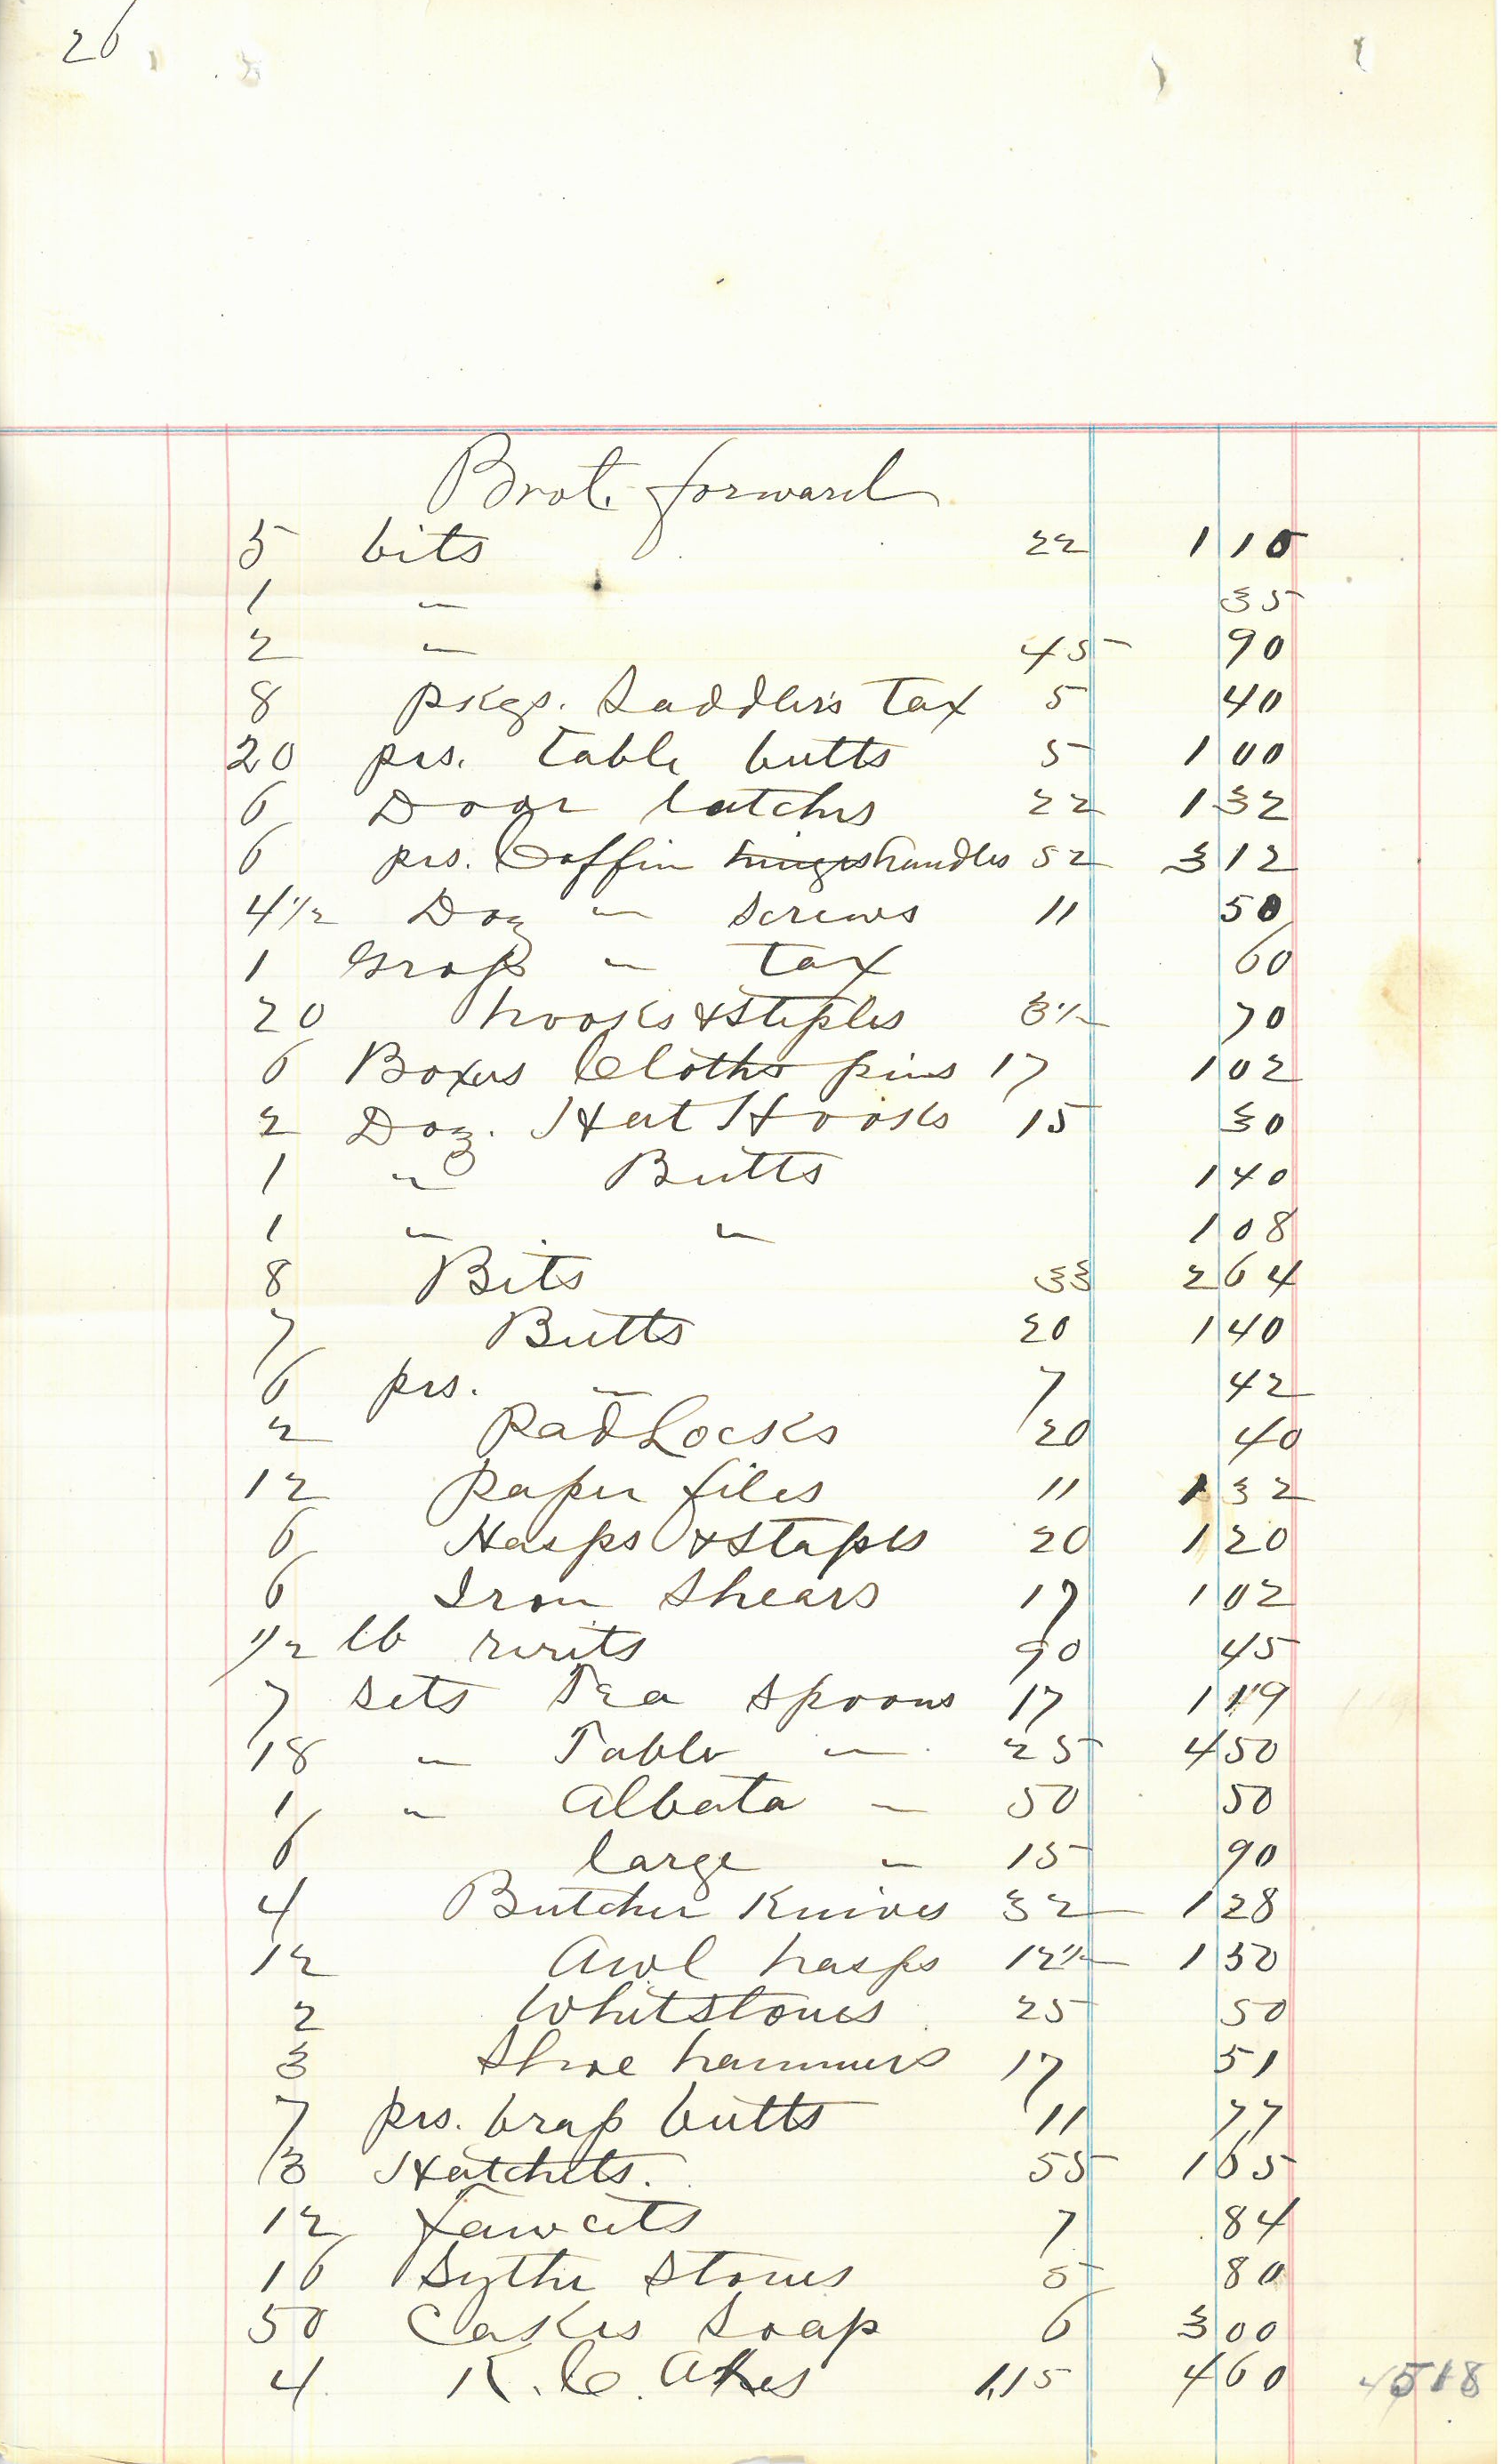 26
Brot. forward
5 bits 22 1 10
1 " 35
2 " 45 90
8 pkgs. Saddlers Tax 5 40
20 prs. table butts 5 1 00
6 Door latches 22 1 32
6 prs. Coffin hinges handles 52 3 12
4 1/2 Doz " Screws 11 50
1 Gross " tax 60
20 hooks & steples 3 1/2 70
6 Boxes Cloths pins 17 1 02
2 Doz. Hat Hooks 15 30
1 " Butts 1 40
1 " " 1 08
8 Bits 33 2 64
7 Butts 20 1 40
6 prs. " 7 42
2 Pad Locks 20 40
12 Paper files 11 1 32
6 Hasps & Staples 20 1 20
6 Iron Shears 17 1 02
1/2 lb rivits 90 45
7 Sets Tea Spoons 17 1 19
18 " Table " 25 4 50
1 " Albata " 50 50
6 large " 15 90
4 Butcher Knives 32 1 28
12 Awl hasps 12 1/2 1 50
2 Whitstones 25 50
3 Shoe hammers 17 51
7 prs. brass butts 11 77
3 Hatchets. 55 1 65
12 fawcets 7 84
16 Sythe Stones 5 80
50 Cakes Soap 6 3 00
4 K. C. Axes 1,15 4 60 4518